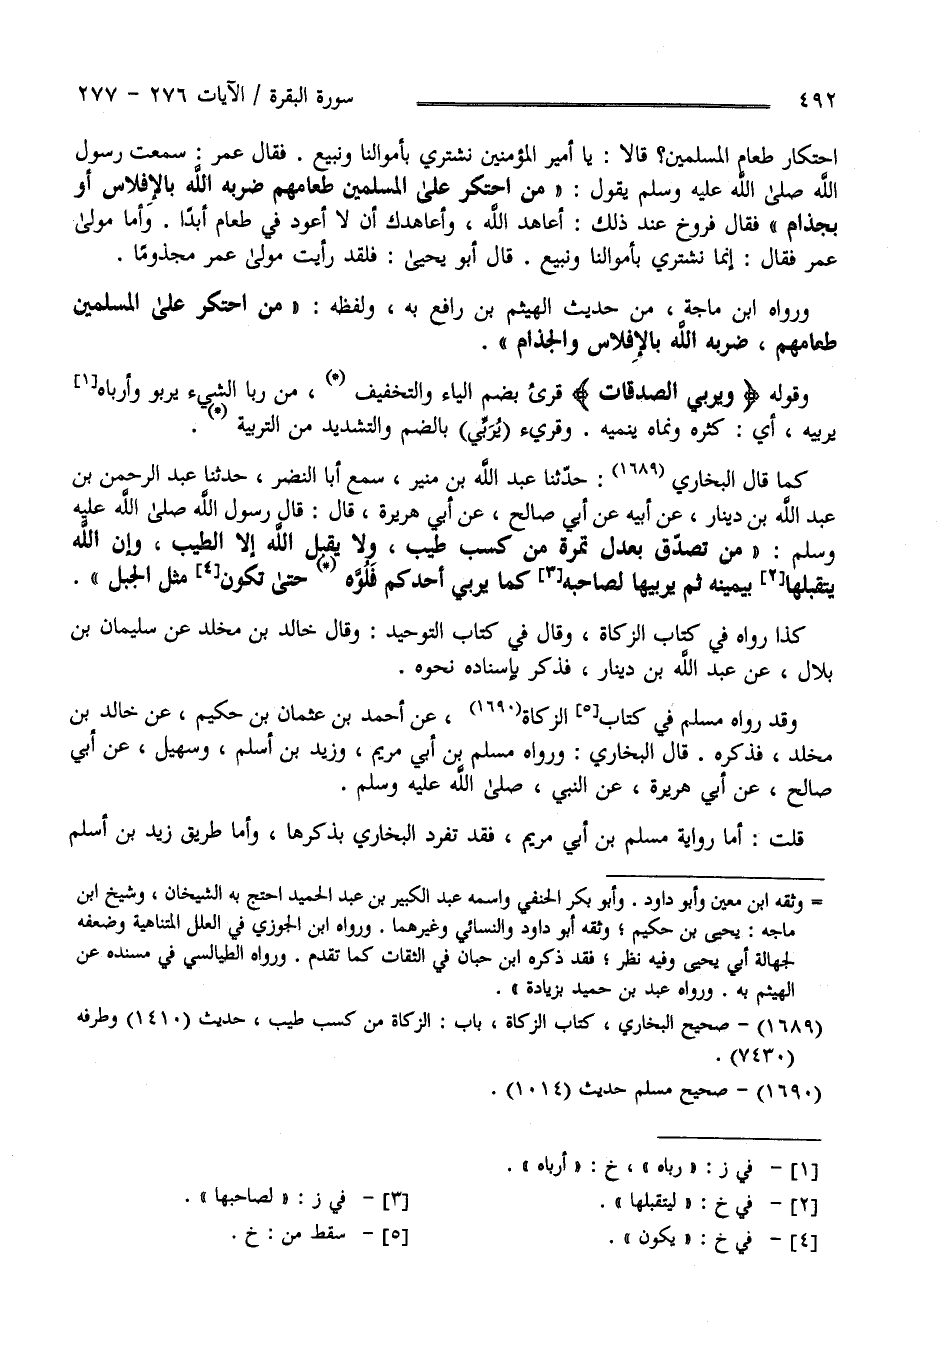 ٤٩٢ سورة البقرة / الآيات ٢٧٦ - ٢٧٧
احتكار طعام المسلمين؟ قالا : يا أمير المؤمنين نشتري بأموالنا ونبيع . فقال عمر : سمعت رسول
اللَّه صلىٰ اللَّه عليه وسلم يقول : « من احتكر علىٰ المسلمين طعامهم ضربه اللَّه بالإفلاس أو
بجذام » فقال فروخ عند ذلك : أعاهد اللَّه ، وأعاهدك أن لا أعود في طعام أبدًا . وأما مولىٰ
عمر فقال : إنما نشتري بأموالنا ونبيع . قال أبو يحيىٰ : فلقد رأيت مولىٰ عمر مجذومًا .
ورواه ابن ماجة ، من حديث الهيثم بن رافع به ، ولفظه : « من احتكر علىٰ المسلمين
طعامهم ، ضربه اللَّه بالإفلاس والجذام » .
وقوله ﴿ ويربي الصدقات ﴾ قرئ بضم الياء والتخفيف (*) ، من ربا الشيء يربو وأرباه[١]
يربيه ، أي : كثره ونماه ينميه . وقريء (يُرَبِّي) بالضم والتشديد من التربية (*) .
كما قال البخاري (١٦٨٩) : حدّثنا عبد اللَّه بن منير ، سمع أبا النضر ، حدثنا عبد الرحمن بن
عبد اللَّه بن دينار ، عن أبيه عن أبي صالح ، عن أبي هريرة ، قال : قال رسول اللَّه صلىٰ اللَّه عليه
وسلم : « من تصدّق بعدل تمرة من كسب طيب ، ولا يقبل اللَّه إلا الطيب ، وإن اللَّه
يتقبلها[٢] بيمينه ثم يربيها لصاحبه[٣] كما يربي أحدكم فَلُوَّه (*) حتىٰ تكون[٤] مثل الجبل » .
كذا رواه في كتاب الزكاة ، وقال في كتاب التوحيد : وقال خالد بن مخلد عن سليمان بن
بلال ، عن عبد اللَّه بن دينار ، فذكر بإسناده نحوه .
وقد رواه مسلم في كتاب[٥] الزكاة(١٦٩٠) ، عن أحمد بن عثمان بن حكيم ، عن خالد بن
مخلد ، فذكره . قال البخاري : ورواه مسلم بن أبي مريم ، وزيد بن أسلم ، وسهيل ، عن أبي
صالح ، عن أبي هريرة ، عن النبي ، صلىٰ اللَّه عليه وسلم .
قلت : أما رواية مسلم بن أبي مريم ، فقد تفرد البخاري بذكرها ، وأما طريق زيد بن أسلم
= وثقه ابن معين وأبو داود . وأبو بكر الحنفي واسمه عبد الكبير بن عبد الحميد احتج به الشيخان ، وشيخ ابن
ماجه : يحيى بن حكيم ؛ وثقه أبو داود والنسائي وغيرهما . ورواه ابن الجوزي في العلل المتناهية وضعفه
لجهالة أبي يحيى وفيه نظر ؛ فقد ذكره ابن حبان في الثقات كما تقدم . ورواه الطيالسي في مسنده عن
الهيثم به . ورواه عبد بن حميد بزيادة » .
(١٦٨٩) - صحيح البخاري ، كتاب الزكاة ، باب : الزكاة من كسب طيب ، حديث (١٤١٠) وطرفه
(٧٤٣٠) .
(١٦٩٠) - صحيح مسلم حديث (١٠١٤) .
[١] - في ز : « رباه » ، خ : « أرباه » .
[٢] - في خ : « ليتقبلها » . [٣] - في ز : « لصاحبها » .
[٤] - في خ : « يكون » . [٥] - سقط من : خ .